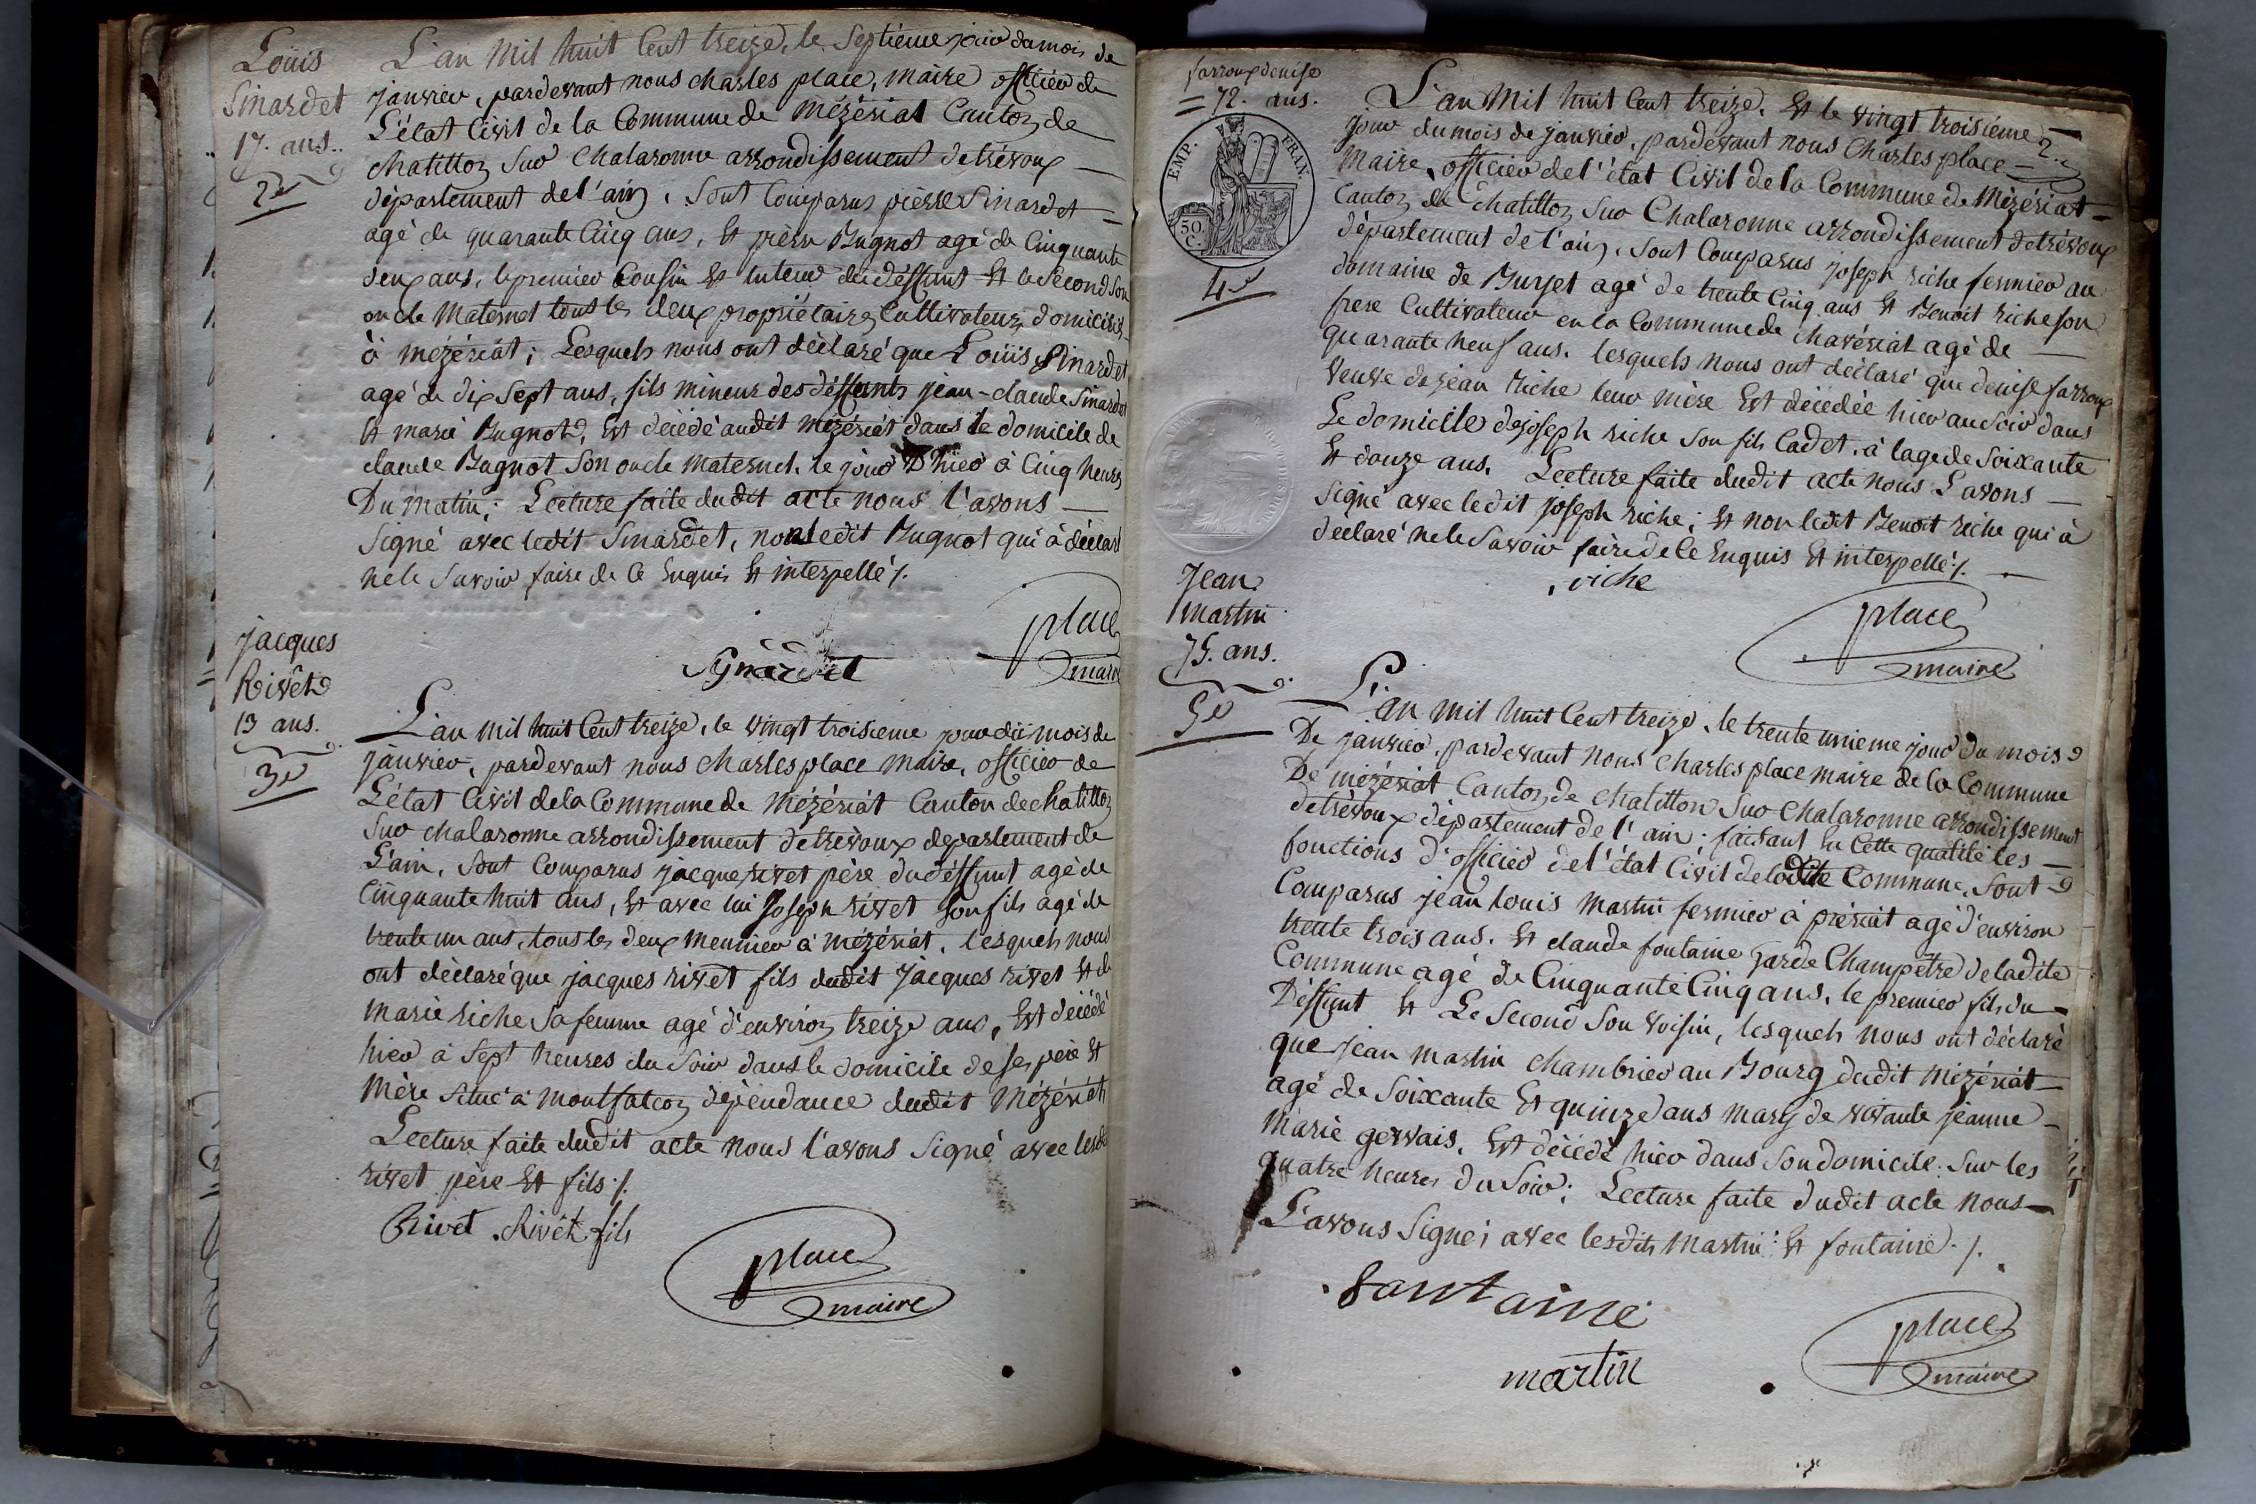 Loüis
Sinardet
17. ans..
2e
L'an mil huit Cent treize, le Septieme jour du mois de
janvier, pardevant nous charles place, maire officier de
L'état Civil de la Commune de Mézériat Canton de
chatillon Sur chalaronne arrondissement de trévoux
département de l'ain, Sont Comparus pierre Sinardet
agé de quarante Cinq ans, Et pierre Bugnot agé de Cinquante
deux ans, le premier Cousin Et tuteur du déffunt Et le Second Son
oncle Maternel tous les deux propriétaires Cultivateurs domiciliés
à mézériat; Lesquels nous ont déclaré que Loüis Sinardet
agé de dix Sept ans, fils mineur des déffunts jean-claude Sinardet
Et marie Bugnot, Est décédé audit mézériat dans le domicile de
claude Bugnot Son oncle maternel. le jour D'hier à Cinq heures
Du Matin; Lecture faite dudit acte nous l'avons
Signé avec ledit Sinardet, non ledit Bugnot qui à déclaré
ne le Savoir faire de Ce Enquis Et interpellé ./.
Synardet
place
maire
jacques
Rivet
13 ans.
3e
L'an mil huit Cent treize, le vingt troisieme jour du mois de
janvier, pardevant nous charles place maire, officier de
L'état Civil de la Commune de Mézériat Canton de chatillon
Sur chalaronne arrondissement de trévoux departement de
L'ain, Sont Comparus jacque rivet père du déffunt agé de
Cinquante huit ans, Et avec lui Joseph rivet Son fils agé de
trente un ans, tous les deux meunier à mézériat, lesquels nous
ont déclaré que jacques rivet fils dudit jacques rivet Et de
marie riche Sa femme agé d'environ treize ans, Est décédé
hier à Sept heures du Soir dans le domicile de Ses père Et
mère Situé à montfalcon dépendance dudit Mézériat
Lecture faite dudit acte nous l'avons Signé avec lesdits
rivet père Et fils ./.
Rivet Rivet fils
place
maire
farroux denise
72. ans.
EMP. FRAN.
50.
C.
4e
2.
L'an Mil huit Cent treize. Et le vingt troisième
jour du mois de janvier, pardevant nous Charles place
Maire, officier de l'état Civil de la Commune de Mézériat
Canton de Chatillon Sur Chalaronne arrondissement de trévoux
département de l'ain, Sont Comparus joseph riche fermier au
domaine de Burjet agé de trente Cinq ans Et Benoit riche Son
frere Cultivateur en la Commune de chavériat agé de
quarante neuf ans. lesquels nous ont déclaré que denise farroux
veuve de jean Riche leur mère Est décédée hier au Soir dans
Le domicile de joseph riche Son fils Cadet, à l'age de Soixante
Et douze ans. Lecture faite dudit acte nous L'avons
Signé avec ledit joseph riche; Et non ledit Benoit riche qui à
declaré ne le Savoir faire de Ce Enquis Et interpellé ./.
riche
place
maire
Jean
martin
75. ans.
5e
L'an mil huit Cent treize, le trente unieme jour du mois
De janvier, pardevant nous Charles place maire de la Commune
De mézériat Canton de chatillon Sur Chalaronne arrondissement
de trévoux département de l'ain; faisant En Cette qualité les
fonctions d'officier de l'état Civil de ladite Commune, Sont
Comparus jean louis Martin fermier à pièriat agé d'environ
trente trois ans. Et claude fontaine garde Champêtre de ladite
Commune agé de Cinquante Cinq ans, le premier fils du
Déffunt Et Le Second Son voisin, lesquels nous ont déclaré
que jean martin chambrier au Bourg dudit mézériat
agé de Soixante Et quinze ans mary de vivante jeanne
Marie gervais, Est décédé hier dans Son domicile, Sur les
quatre heures du Soir; Lecture faite dudit acte nous
L'avons Signé; avec lesdits Martin Et fontaine ./.
fantaine
martin
place
maire